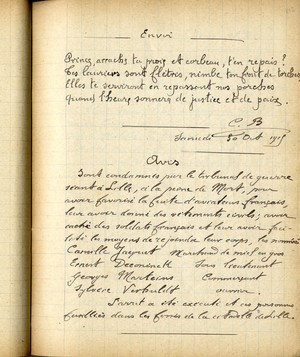 Envoi
Prince, arrache ta proie et corbeau, t'en repais !
Tes lauriers sont flétris, nimbe ton front de torches
Elles te serviront en repassant nos porches
Quand l'heure sonnera de justice et de paix.
C. B
30 Oct 1915
Avis
Sont condamnés par le tribunal de guerre
séant à Lille, à la peine de Mort, pour
avoir favorisé la fuite d'aviateurs français,
leur avoir donné des vêtements civils; avoir
caché des soldats français et leur avoir faci-
lité les moyens de rejoindre leur corps, les nommés
Camille Jacquet Marchand de vin en gros
Ernest Deconinck Sous Lieutenant
Georges Maertens Commerçant
Sylvère Verhulst ouvrier.
L'arrêt a été exécuté et ces personnes
fusillées dans les fossés de la citadelle de Lille.